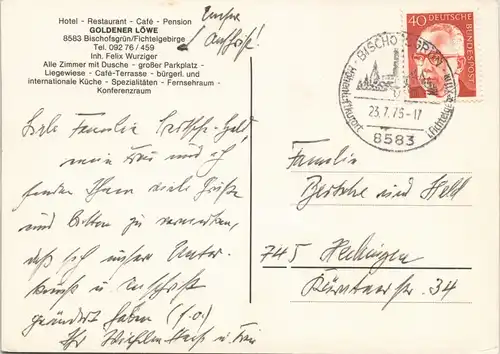 Hotel - Restaurant - Café - Pension
GOLDENER LÖWE
8583 Bischofsgrün/Fichtelgebirge
Tel. 092 76 / 459
Inh. Felix Wurziger
Alle Zimmer mit Dusche - großer Parkplatz -
Liegewiese - Café-Terrasse - bürgerl. und
internationale Küche - Spezialitäten - Fernsehraum -
Konferenzraum
Unsere
Anschrift!
Liebe Familie
mein Frau und ich
senden Ihnen viele Grüße
und bitten zu vermerken,
daß sich unsere Unter-
kunft u. Anschrift
geändert haben (s.o.)
Ihr Wilhelm u. Frau
BISCHOFSGRÜN
Höhenluftkurort
Fichtelgebirge
23.7.75-17
8583
40
DEUTSCHE
BUNDESPOST
Familie
und Held
745 Hechingen
Kärntnerstr. 34